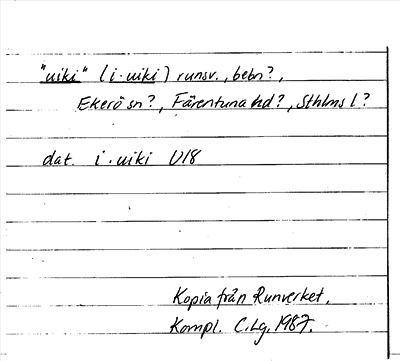 "uiki" (i·uiki) runsv., bebn?,
Ekerö sn?, Färentuna hd?, Sthlms l?
dat. i·uiki U18
Kopia från Runverket.
Kompl. C.Lg. 1987.